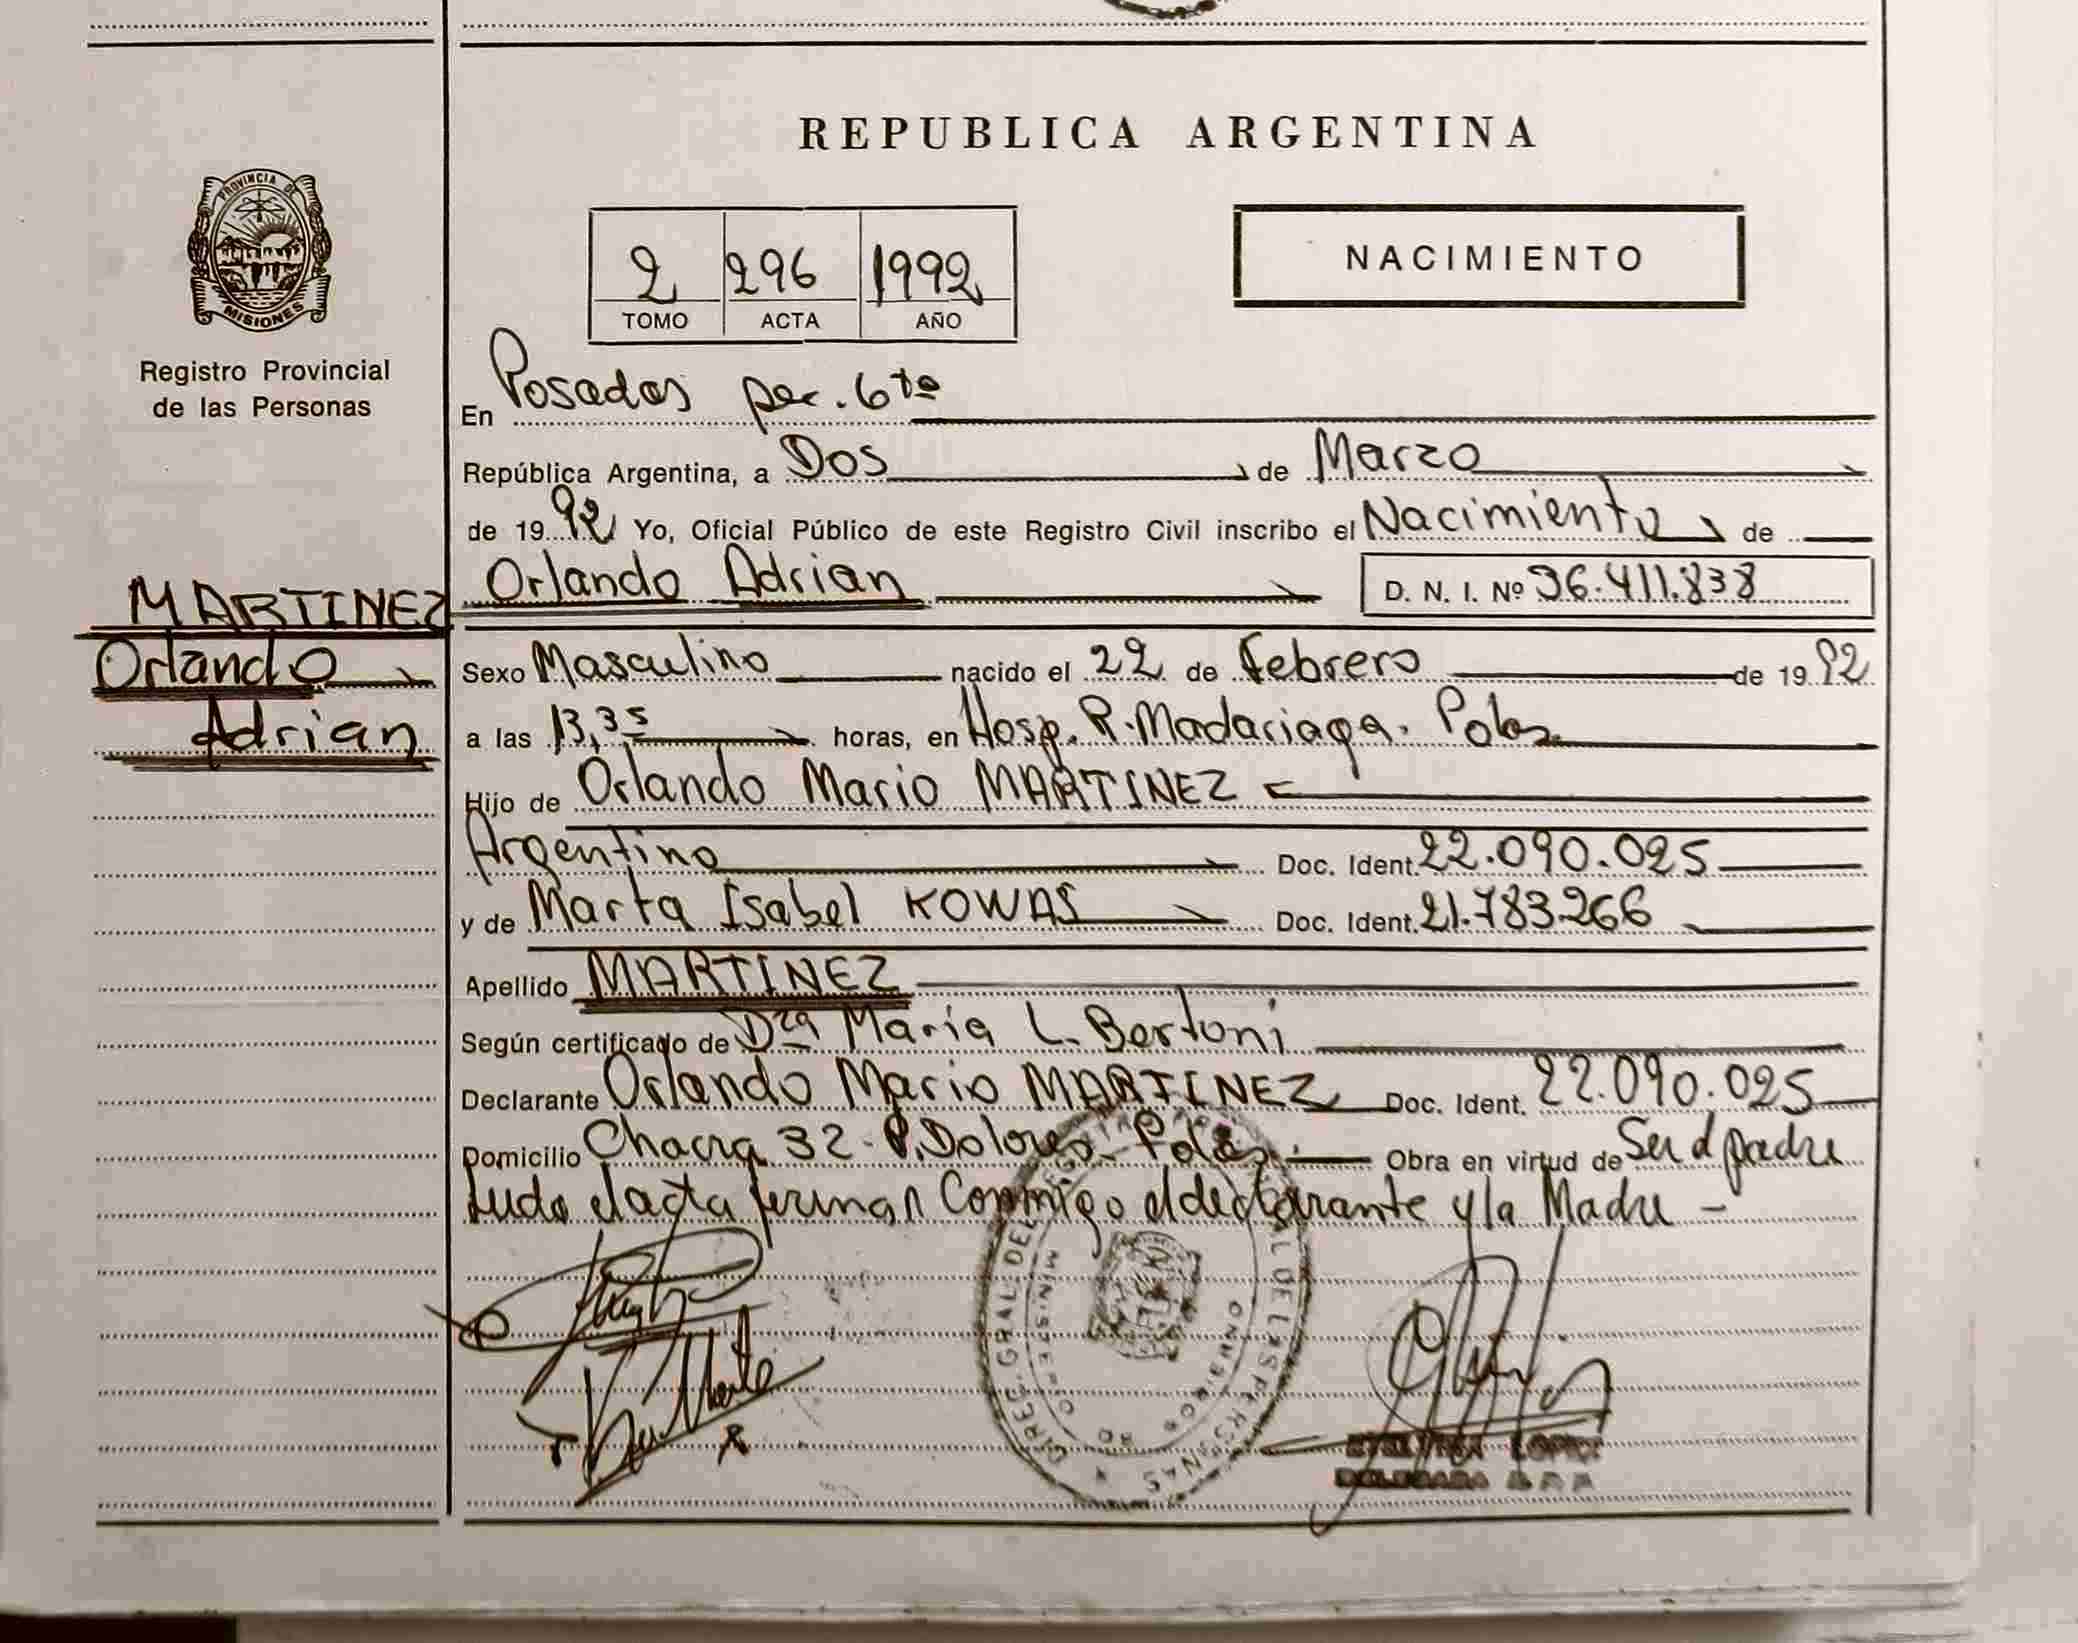 REPUBLICA ARGENTINA
PROVINCIA DE
MISIONES
Registro Provincial
de las Personas
2 296 1992
TOMO ACTA AÑO
NACIMIENTO
En Posadas per. 6ta
República Argentina, a Dos de Marzo
de 1992 Yo, Oficial Público de este Registro Civil inscribo el Nacimiento de
MARTINEZ
Orlando
Adrian
Orlando Adrian D. N. I. Nº 36.411.838
Sexo Masculino nacido el 22 de Febrero de 1992
a las 13,35 horas, en Hosp. R. Madariaga. Pdas
Hijo de Orlando Mario MARTINEZ
Argentino Doc. Ident. 22.090.025
y de Marta Isabel KOWAS Doc. Ident. 21.783.266
Apellido MARTINEZ
Según certificado de Dra María L. Bertoni
Declarante Orlando Mario MARTINEZ Doc. Ident. 22.090.025
Domicilio Chacra 32 - V. Dolores - Pdas. Obra en virtud de Ser el padre
Leida el acta firman Conmigo el declarante y la Madre -
DIREC. GRAL. DEL DE LAS PERSONAS
MINIS DE GOBIERNO